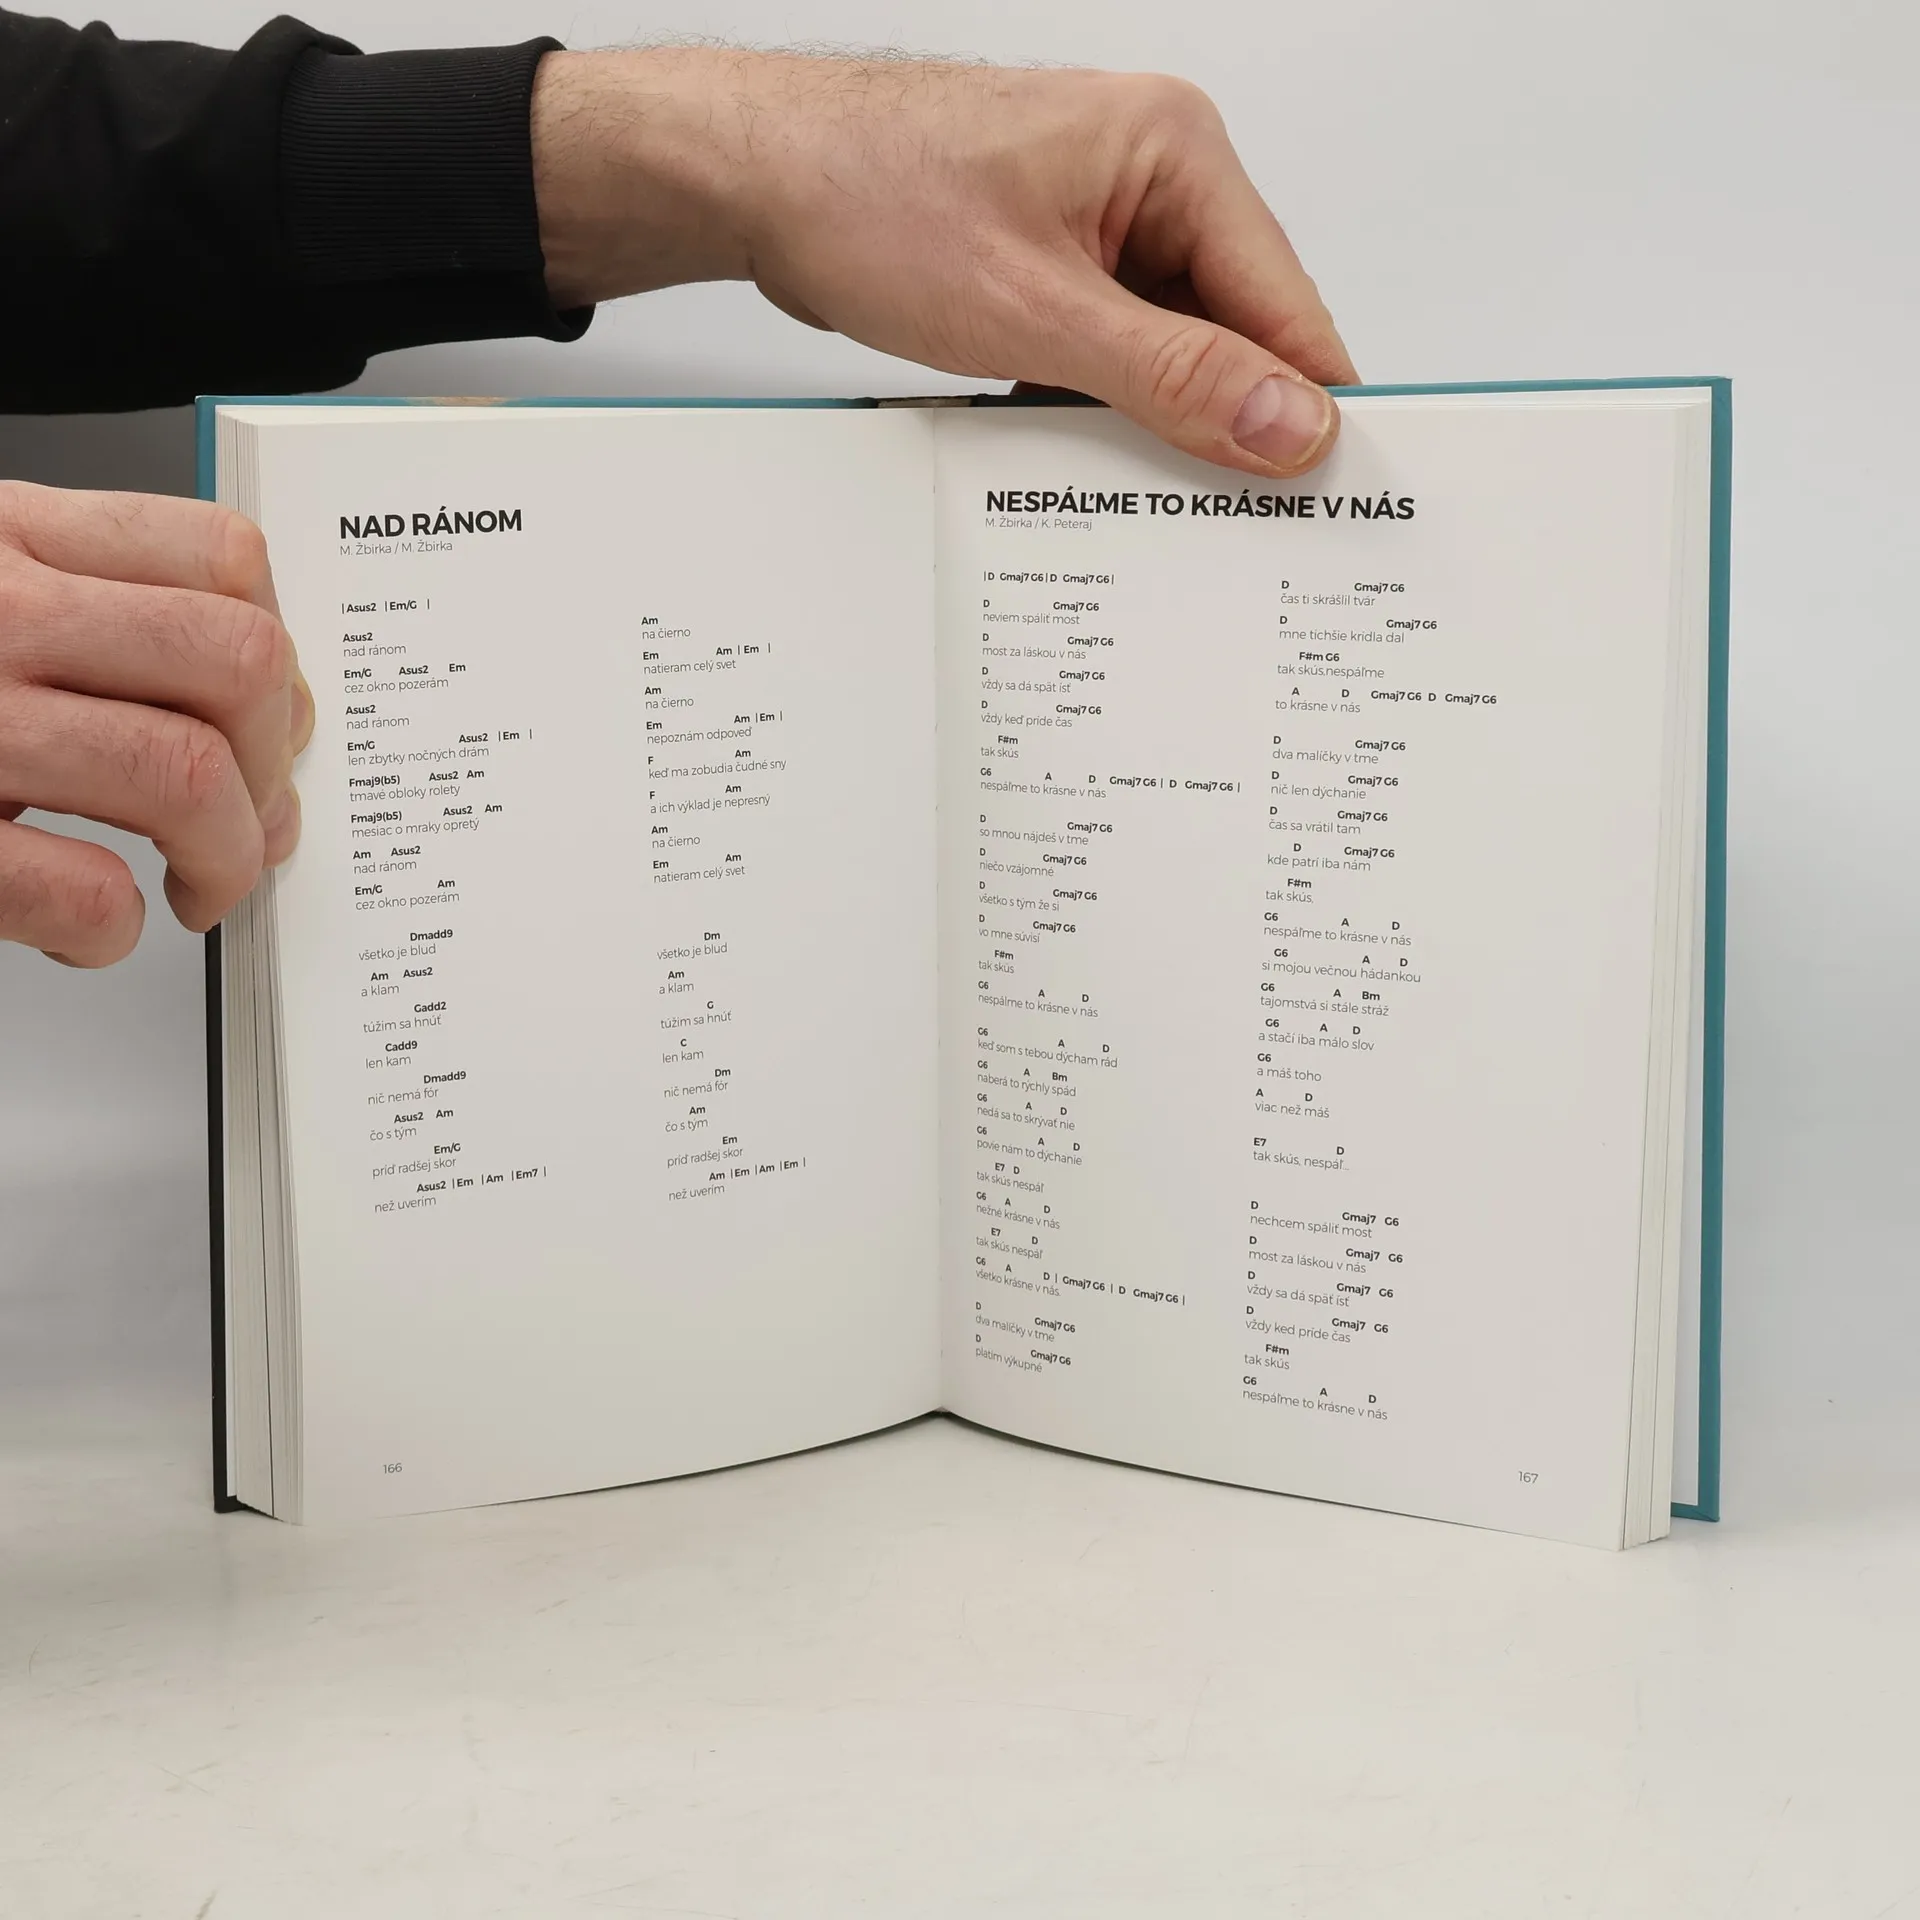 NAD RÁNOM
M. Žbirka / M. Žbirka
| Asus2 | Em/G |
Asus2
nad ránom
Em/G Asus2 Em
cez okno pozerám
Asus2
nad ránom
Em/G Asus2 | Em |
len zbytky nočných drám
Fmaj9(b5) Asus2 Am
tmavé obloky rolety
Fmaj9(b5) Asus2 Am
mesiac o mraky opretý
Am Asus2
nad ránom
Em/G Am
cez okno pozerám
Dmadd9
všetko je blud
Am Asus2
a klam
Gadd2
túžim sa hnúť
Cadd9
len kam
Dmadd9
nič nemá fór
Asus2 Am
čo s tým
Em/G
príď radšej skor
Asus2 | Em | Am | Em7 |
než uverím
Am
na čierno
Em Am | Em |
natieram celý svet
Am
na čierno
Em Am | Em |
nepoznám odpoveď
F Am
keď ma zobudia čudné sny
F Am
a ich výklad je nepresný
Am
na čierno
Em Am
natieram celý svet
Dm
všetko je blud
Am
a klam
G
túžim sa hnúť
C
len kam
Dm
nič nemá fór
Am
čo s tým
Em
príď radšej skor
Am | Em | Am | Em |
než uverím
166
NESPÁĽME TO KRÁSNE V NÁS
M. Žbirka / K. Peteraj
| D Gmaj7 G6 | D Gmaj7 G6 |
D Gmaj7 G6
neviem spáliť most
D Gmaj7 G6
most za láskou v nás
D Gmaj7 G6
vždy sa dá späť ísť
D Gmaj7 G6
vždy keď príde čas
F#m
tak skús
G6 A D Gmaj7 G6 | D Gmaj7 G6 |
nespáľme to krásne v nás
D Gmaj7 G6
so mnou nájdeš v tme
D Gmaj7 G6
niečo vzájomné
D Gmaj7 G6
všetko s tým že si
D Gmaj7 G6
vo mne súvisí
F#m
tak skús
G6 A D
nespálme to krásne v nás
G6 A D
keď som s tebou dýcham rád
G6 A Bm
naberá to rýchly spád
G6 A D
nedá sa to skrývať nie
G6 A D
povie nám to dýchanie
E7 D
tak skús nespáľ
G6 A D
nežné krásne v nás
E7 D
tak skús nespáľ
G6 A D | Gmaj7 G6 | D Gmaj7 G6 |
všetko krásne v nás.
D Gmaj7 G6
dva malíčky v tme
D Gmaj7 G6
platím výkupné
D Gmaj7 G6
čas ti skrášlil tvár
D Gmaj7 G6
mne tichšie krídla dal
F#m G6
tak skús,nespáľme
A D Gmaj7 G6 D Gmaj7 G6
to krásne v nás
D Gmaj7 G6
dva malíčky v tme
D Gmaj7 G6
nič len dýchanie
D Gmaj7 G6
čas sa vrátil tam
D Gmaj7 G6
kde patrí iba nám
F#m
tak skús,
G6 A D
nespáľme to krásne v nás
G6 A D
si mojou večnou hádankou
G6 A Bm
tajomstvá si stále stráž
G6 A D
a stačí iba málo slov
G6
a máš toho
A D
viac než máš
E7 D
tak skús, nespáľ...
D Gmaj7 G6
nechcem spáliť most
D Gmaj7 G6
most za láskou v nás
D Gmaj7 G6
vždy sa dá späť ísť
D Gmaj7 G6
vždy keď príde čas
F#m
tak skús
G6 A D
nespáľme to krásne v nás
167